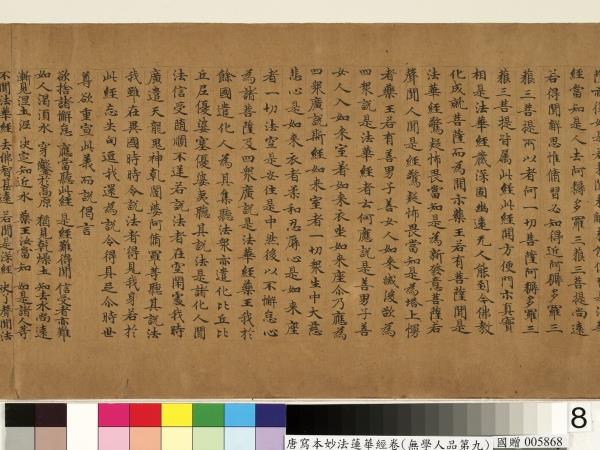 經當知是人去阿耨多羅三藐三菩提尚遠
若得聞解思惟修習必知得近阿耨多羅三
藐三菩提所以者何一切菩薩阿耨多羅三
藐三菩提皆屬此經此經開方便門示真實
相是法華經藏深固幽遠无人能到今佛教
化成就菩薩而為開示藥王若有菩薩聞是
法華經驚疑怖畏當知是為新發意菩薩若
聲聞人聞是經驚疑怖畏當知是為增上慢
者藥王若有善男子善女人如來滅後欲為
四眾說是法華經者云何應說是善男子善
女人入如來室著如來衣坐如來座尒乃應為
四眾廣說斯經如來室者一切眾生中大慈
悲心是如來衣者柔和忍辱心是如來座
者一切法空是安住是中然後以不懈怠心
為諸菩薩及四眾廣說是法華經藥王我於
餘國遣化人為其集聽法眾亦遣化比丘比
丘尼優婆塞優婆夷聽其說法是諸化人聞
法信受隨順不逆若說法者在空閑處我時
廣遣天龍鬼神乾闥婆阿脩羅等聽其說法
我雖在異國時時令說法者得見我身若於
此經忘失句逗我還為說令得具足尒時世
尊欲重宣此義而說偈言
欲捨諸懈怠 應當聽此經 是經難得聞 信受者亦難
如人渴須水 穿鑿於高原 猶見乾燥土 知去水尚遠
漸見濕土泥 決定知近水 藥王汝當知 如是諸人等
不聞法華經 去佛智甚遠 若聞是深經 決了聲聞法
8
唐寫本妙法蓮華經卷(無學人品第九) 國贈 005868